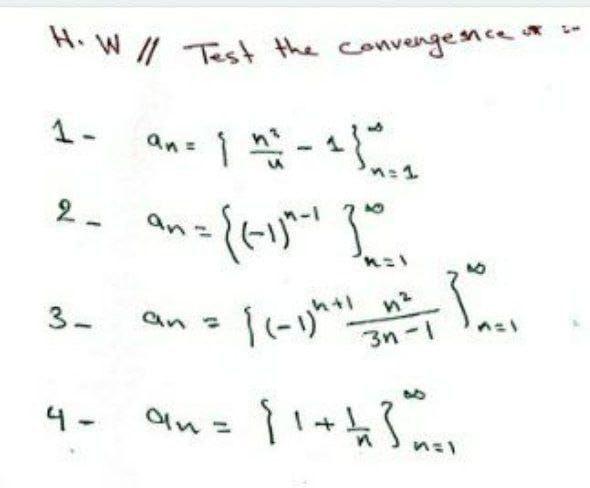 H.W // Test the convengesnce
1- an = { n²/4 - 1 }^∞ n=1
2- an = { (-1)^n-1 }^∞ n=1
3- an = { (-1)^n+1 n²/3n-1 }^∞ n=1
4- an = { 1 + 1/n }^∞ n=1